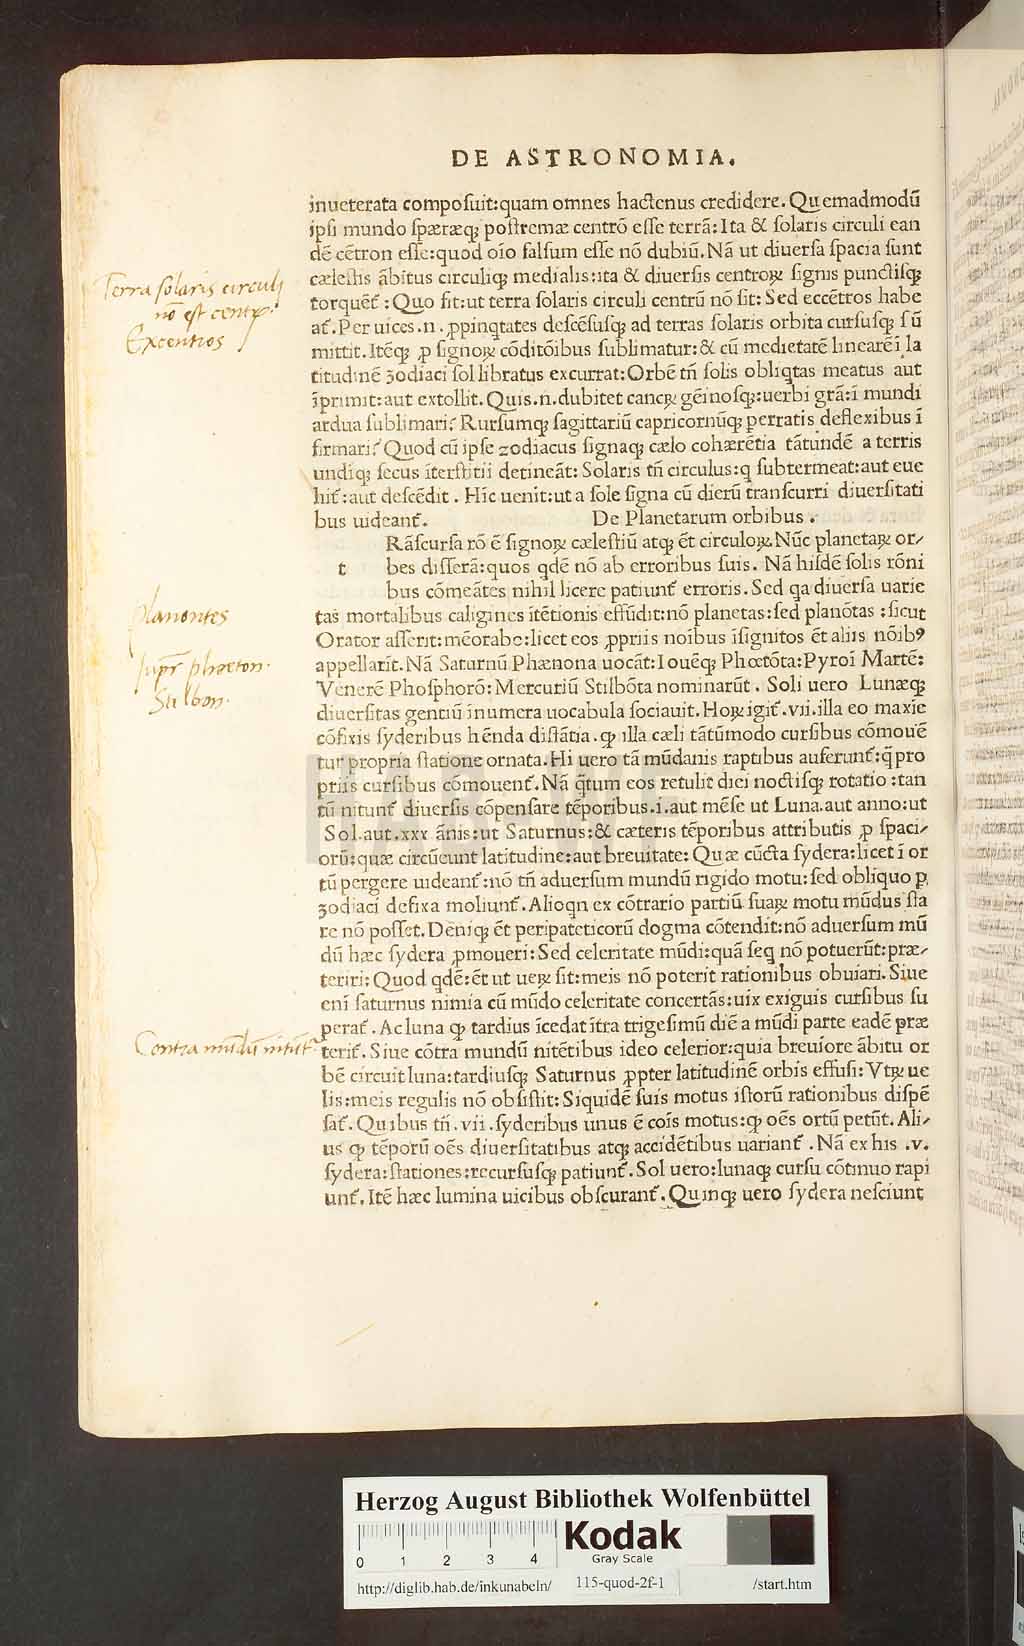 DE ASTRONOMIA.
inueterata composuit:quam omnes hactenus credidere. Quemadmodũ
ipsi mundo spæræq; postremæ centrõ esse terrã: Ita & solaris circuli ean
dẽ cẽtron esse:quod oĩo falsum esse nõ dubiũ. Nã ut diuersa spacia sunt
cælestis ãbitus circuliq; medialis:ita & diuersis centroꝝ signis punctisq;
torquẽt᷑: Quo fit:ut terra solaris circuli centrũ nõ sit: Sed eccẽtros habe
at᷑. Per uices .n. ꝓpinqtates descẽsusq; ad terras solaris orbita cursusq; sũ
mittit. Itẽq; ꝑ signoꝝ cõditõibus sublimatur: & cũ medietatẽ linearẽ ĩ la
titudinẽ ʒodiaci sol libratus excurrat: Orbẽ tñ solis obliqtas meatus aut
ĩprimit: aut extollit. Quis .n. dubitet cancꝝ gẽinosq;:uerbi grã:ĩ mundi
ardua sublimari? Rursumq; sagittariũ capricornũq; perratis deflexibus ĩ
firmari? Quod cũ ipse zodiacus signaq; cælo cohærẽtia tãtundẽ a terris
undiq; secus ĩterstitii detineãt: Solaris tñ circulus:q subtermeat:aut eue
hit᷑:aut descẽdit. Hĩc uenit:ut a sole signa cũ dierũ transcurri diuersitati
bus uideant᷑.
De Planetarum orbibus.
t
Rãscursa rõ ẽ signoꝝ cælestiũ atq; ẽt circuloꝝ. Nũc planetaꝝ or-
bes disserã:quos qdẽ nõ ab erroribus suis. Nã hisdẽ solis rõni
bus cõmeãtes nihil licere patiunt᷑ erroris. Sed qa diuersa uarie
tas mortalibus caligines ĩtẽtionis effũdit:nõ planetas:sed planõtas:sicut
Orator asserit:mẽorabo:licet eos ꝓpriis noĩbus ĩsignitos ẽt aliis nõibꝰ
appellarit. Nã Saturnũ Phænona uocãt: Iouẽq; Phœtõta: Pyroĩ Martẽ:
Venerẽ Phosphorõ: Mercuriũ Stilbõta nominarũt. Soli uero Lunæq;
diuersitas gentiũ ĩnumera uocabula sociauit. Hoꝝ igit᷑ .vii. illa eo maxie
cõfixis syderibus hẽnda distãtia. ꝙ illa cæli tãtũmodo cursibus cõmouẽ
tur propria statione ornata. Hi uero tã mũdanis raptibus auferunt᷑:q̃ pro
priis cursibus cõmouent᷑. Nã q̃tum eos retulit diei noctisq; rotatio:tan
tũ nitunt᷑ diuersis cõpensare tẽporibus .i. aut mẽse ut Luna. aut anno:ut
Sol. aut .xxx ãnis:ut Saturnus: & cæteris tẽporibus attributis ꝑ spaci-
orũ:quæ circũeunt latitudine:aut breuitate: Quæ cũcta sydera:licet ĩ or
tũ pergere uideant᷑:nõ tñ aduersum mundũ rigido motu:sed obliquo ꝑ
ʒodiaci defixa moliunt᷑. Alioqn ex cõtrario partiũ suaꝝ motu mũdus sta
re nõ posset. Deniq; ẽt peripateticorũ dogma cõtendit:nõ aduersum mũ
dũ hæc sydera ꝓmoueri: Sed celeritate mũdi:quã seq nõ potuerũt:præ-
teriri: Quod qdẽ:ẽt ut ueꝝ sit:meis nõ poterit rationibus obuiari. Siue
enĩ saturnus nimia cũ mũdo celeritate concertãs:uix exiguis cursibus su
perat᷑. Ac luna ꝙ tardius ĩcedat ĩtra trigesimũ diẽ a mũdi parte eadẽ præ
terit᷑. Siue cõtra mundũ nitẽtibus ideo celerior:quia breuiore ãbitu or
bẽ circuit luna:tardiusq; Saturnus ꝓpter latitudinẽ orbis effusi: Vtꝝ ue
lis:meis regulis nõ obsistit: Siquidẽ suis motus istorũ rationibus dispẽ
sat᷑. Quibus tñ .vii. syderibus unus ẽ cois motus:ꝙ oẽs ortũ petũt. Ali-
us ꝙ tẽporũ oẽs diuersitatibus atq; accidẽtibus uariant᷑. Nã ex his .v.
sydera:stationes:recursusq; patiunt᷑. Sol uero:lunaq; cursu cõtinuo rapi
unt᷑. Itẽ hæc lumina uicibus obscurant᷑. Quinq; uero sydera nesciunt
Terra solaris circuli
nõ est centꝝ.
Excentros
planontes
Iupr̃ phaeton.
Stilbon.
Contra mũdũ nitũt᷑
HAB WF
Herzog August Bibliothek Wolfenbüttel
0 1 2 3 4
Kodak
Gray Scale
http://diglib.hab.de/inkunabeln/ 115-quod-2f-1 /start.htm